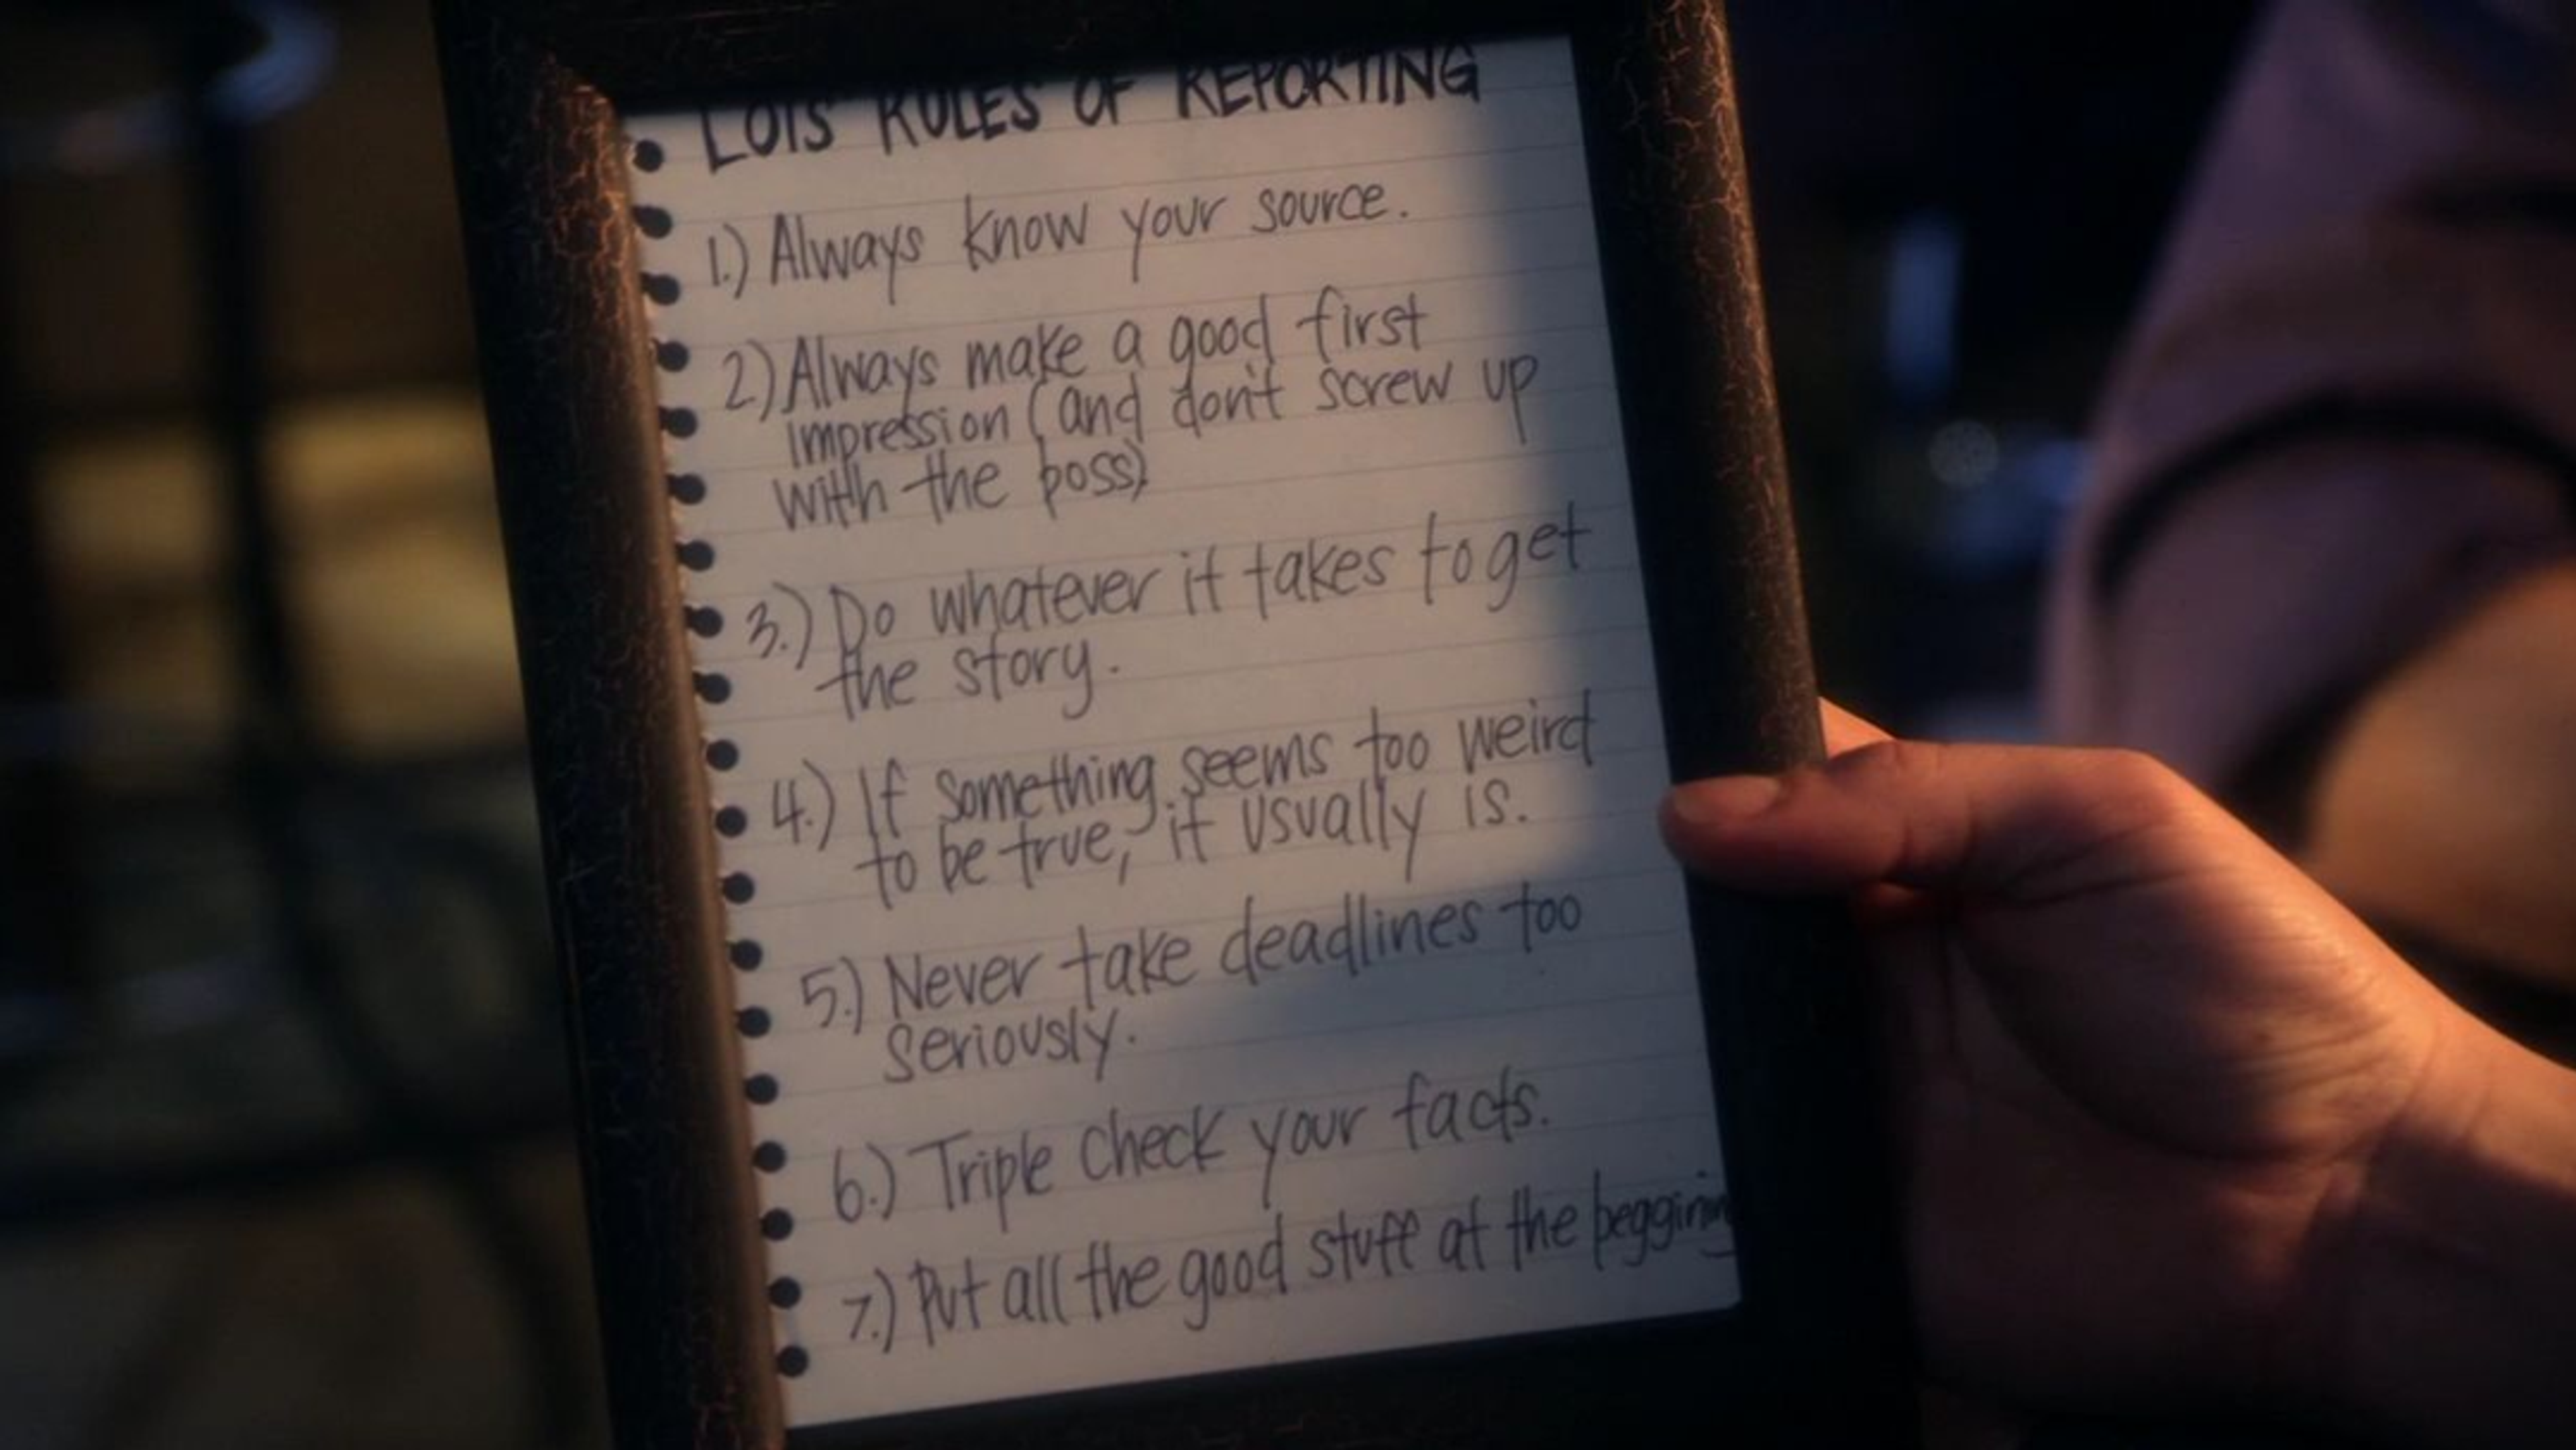 LOIS RULES OF REPORTING
1.) Always know your source.
2.) Always make a good first
impression (and don't screw up
with the boss)
3.) Do whatever it takes to get
the story.
4.) If something seems too weird
to be true, it usually is.
5.) Never take deadlines too
seriously.
6.) Triple check your facts.
7.) Put all the good stuff at the beggining